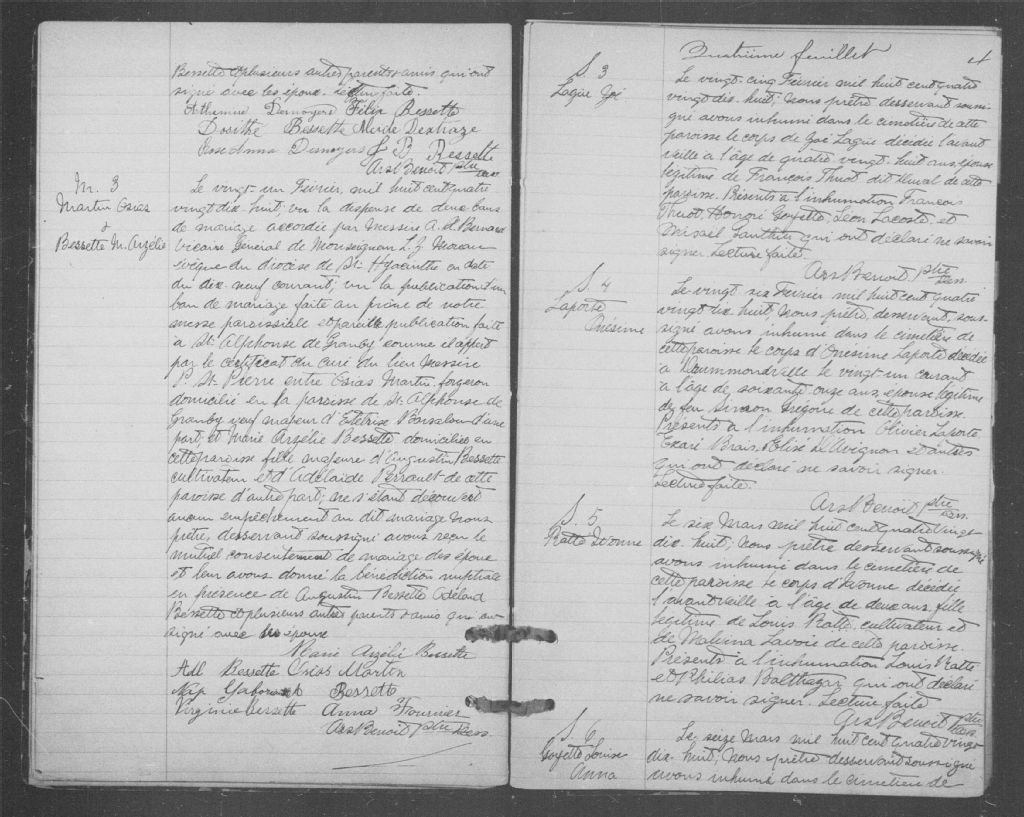 Bessette et plusieurs autres parents & amis qui ont
signé avec les époux. Lecture faite.
Desnoyers Félix Bessette
Dosithé Bessette
Rose Anna Desnoyers J B Bessette
Ars Benoit ptre
M. 3
Martin Osias
&
Bessette M. Arzélie
Le vingt un Février, mil huit cent quatre
vingt dix-huit; vu la dispense de deux bans
de mariage accordée par Messire A. d. Bernard
Vicaire Général de Monseigneur L. Z. Moreau
évêque du diocèse de St. Hyacinthe en date
du dix-neuf courant; vu la publication d'un
ban de mariage faite au prône de notre
messe paroissiale et pareille publication faite
à St. Alphonse de Granby comme il appert
par le certificat du curé du lieu Messire
P. St. Pierre entre Osias Martin, forgeron
domicilié en la paroisse de St. Alphonse de
Granby veuf majeur d'une
part; et Marie Arzélie Bessette domiciliée en
cette paroisse fille majeure d'Augustin Bessette
cultivateur et d'Adélaide Perrault de cette
paroisse d'autre part; ne s'étant découvert
aucun empêchement au dit mariage nous
prêtre, desservant soussigné avons reçu le
mutuel consentement de mariage des époux
et leur avons donné la bénédiction nuptiale
en présence de Augustin Bessette Adélard
Bessette et plusieurs autres parents & amis qui ont
signé avec les époux
Marie Arzélie Bessette
Ad Bessette Osias Martin
Bessette
Virginie Bessette Anna Fournier
Ars Benoit ptre dess.
Quatrième feuillet 4
S. 3
Lague Zoé
Le vingt-cinq Février mil huit cent quatre
vingt dix-huit; Nous prêtre desservant soussi-
gné avons inhumé dans le cimetière de cette
paroisse le corps de Zoé Lague décédée l'avant
veille à l'âge de quatre vingt-huit ans, épouse
légitime de François Thuot dit Duval de cette
paroisse. Présents à l'inhumation François
Thuot, Honoré Goyette, Léon Lacoste, et
Misaël qui ont déclaré ne savoir
signer. Lecture faite.
Ars Benoit ptre
dess.
S. 4
Laporte
Onésime
Le vingt six Février mil huit cent quatre
vingt dix-huit, Nous prêtre, desservant, sous-
signé avons inhumé dans le cimetière de
cette paroisse le corps d'Onésime Laporte décédée
à Drummondville le vingt un courant
à l'âge de soixante-onze ans, épouse légitime
de feu Simon Grégoire de cette paroisse.
Présents à l'inhumation Olivier Laporte
Brais, Elisé D'Avignon et autres
qui ont déclaré ne savoir signer.
Lecture faite.
Ars Benoit, ptre
dess.
S. 5
Ratté Ivonne
Le six Mars mil huit cent quatre vingt
dix-huit; Nous prêtre desservant soussigné
avons inhumé dans le cimetière de
cette paroisse le corps d'Ivonne décédée
l'avant veille à l'âge de deux ans, fille
légitime de Louis Ratté, cultivateur et
de Malvina Lavoie de cette paroisse.
Présents à l'inhumation Louis Ratté
et Philias Balthazar qui ont déclaré
ne savoir signer. Lecture faite
Ars Benoit ptre
dess.
S. 6
Goyette Louise
Anna
Le seize Mars mil huit cent quatre vingt
dix-huit; Nous prêtre desservant soussigné
avons inhumé dans le cimetière de